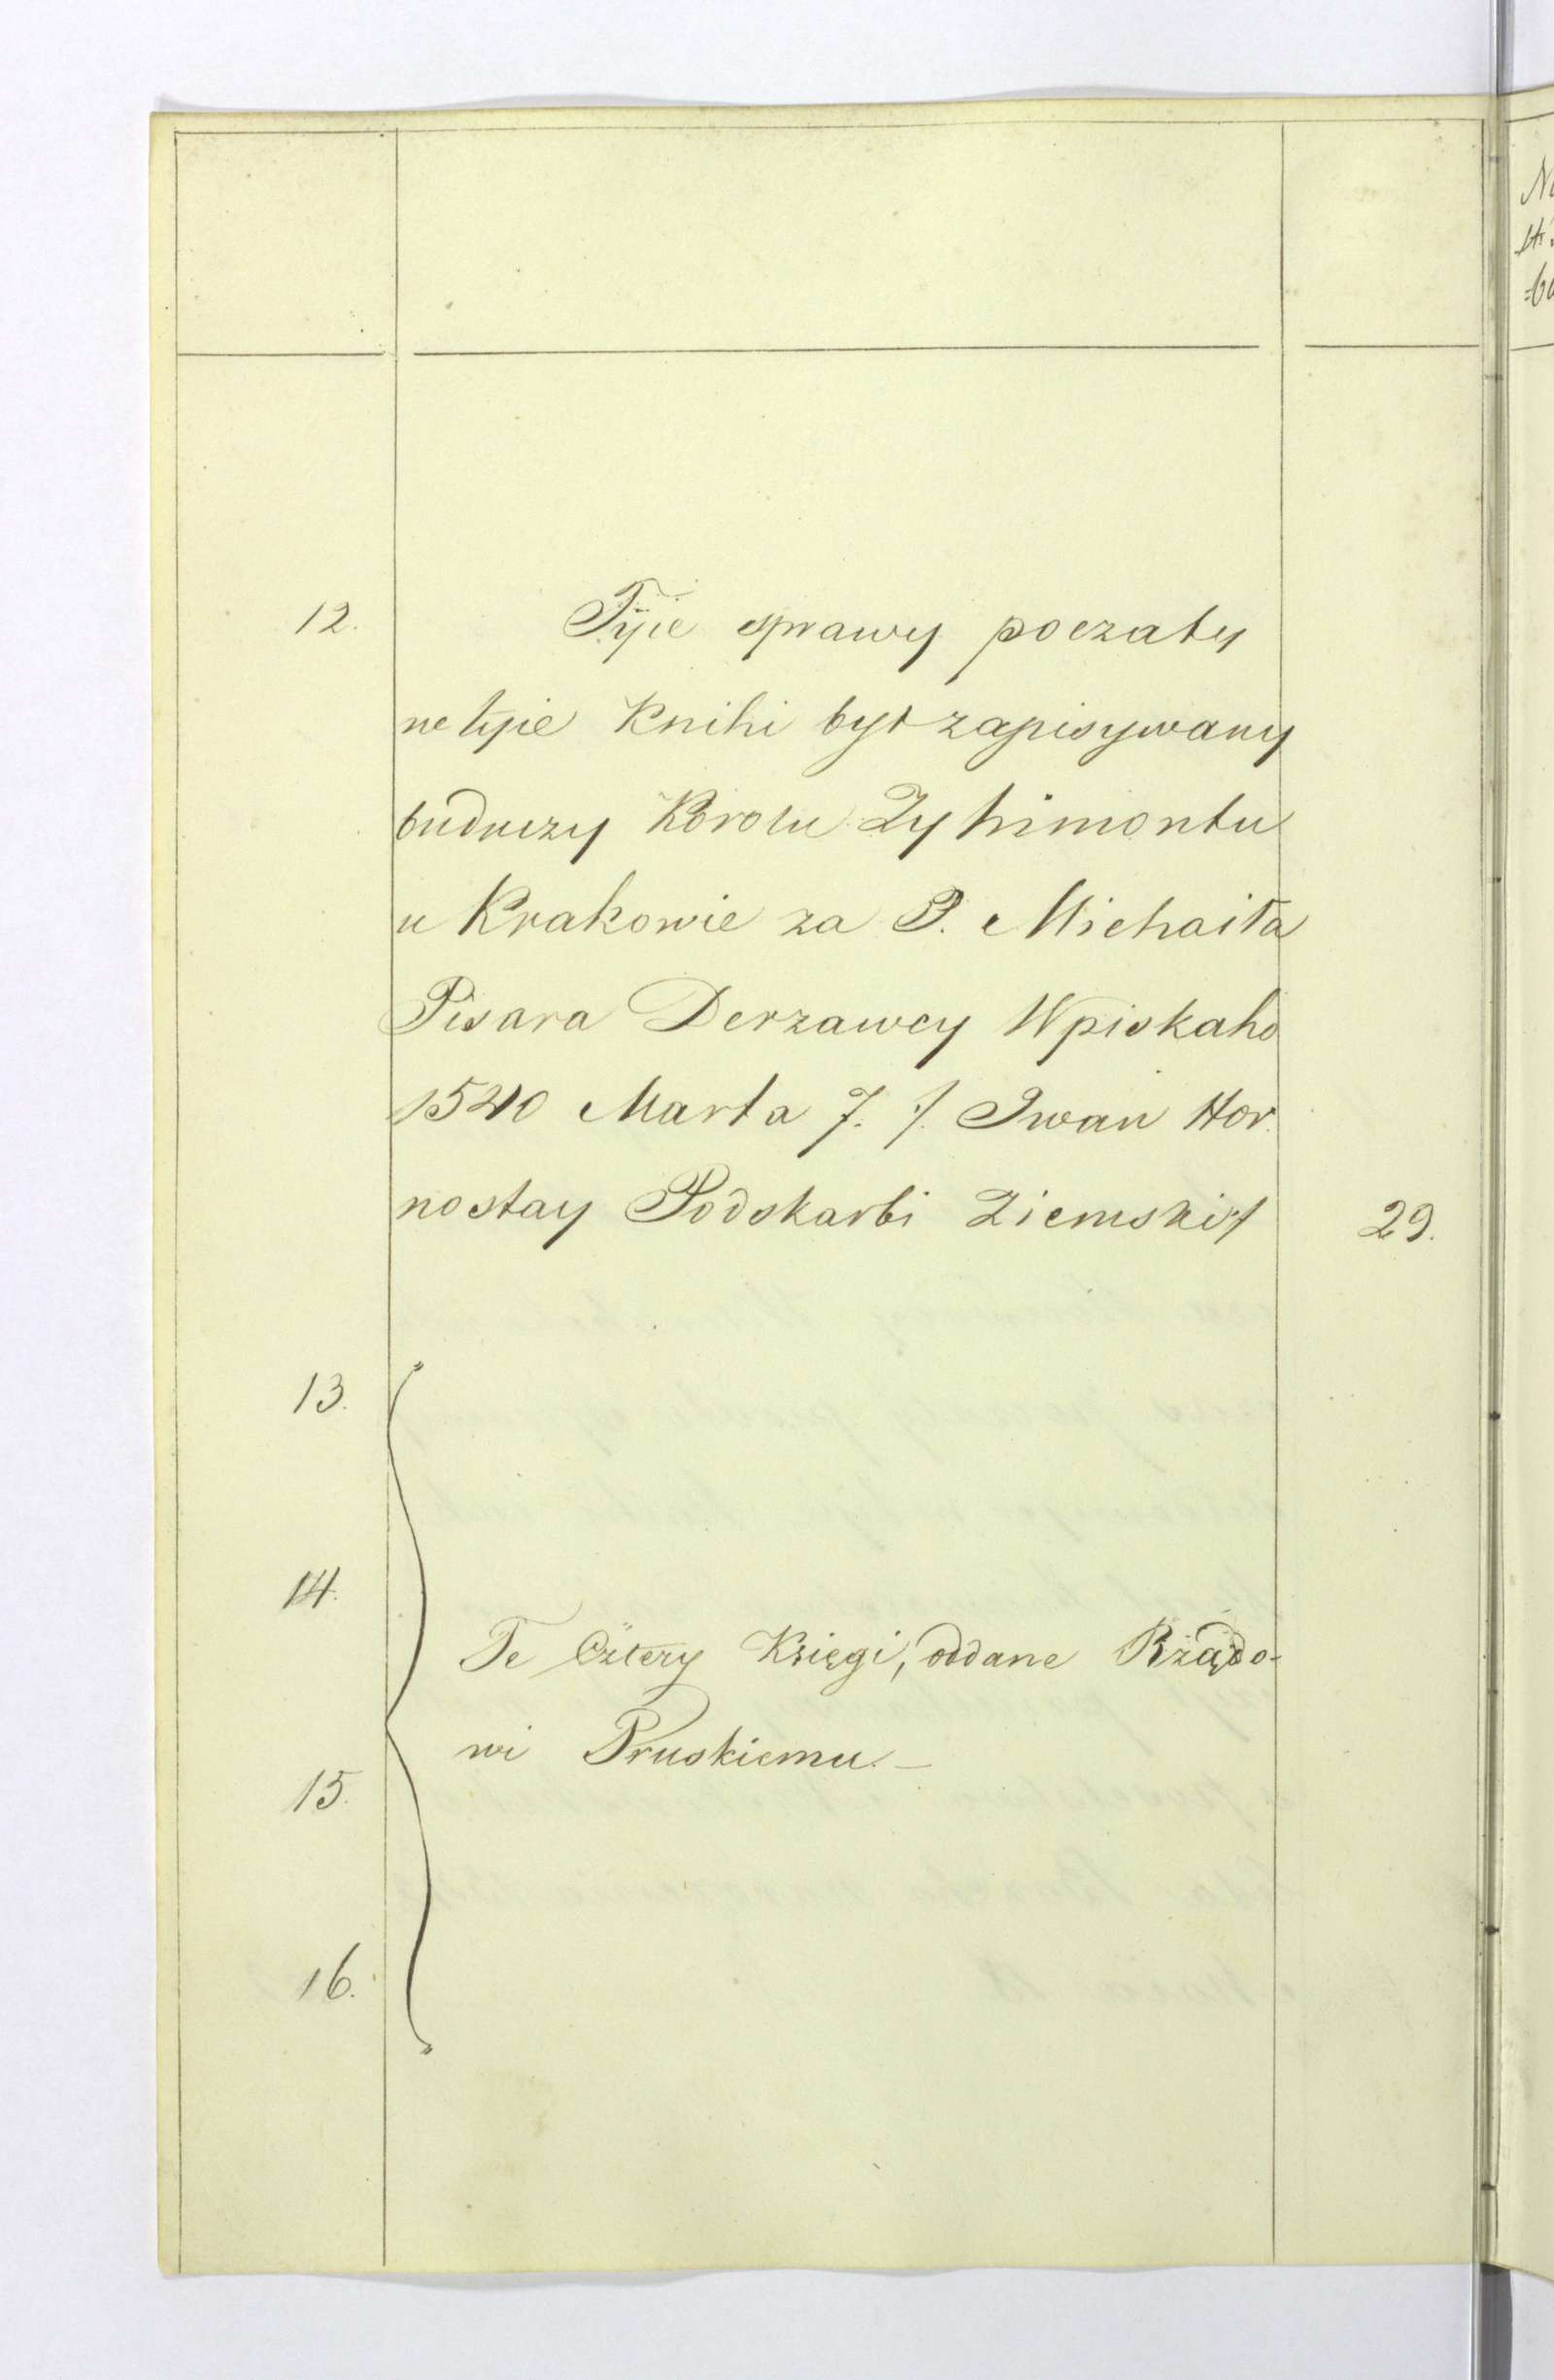 12. Tyie sprawy poczaty
we tyie Knihi być zapisywany
buduczy Korolu Zyhimontu
u Krakowie za P. Michaiła
Pisara Derzawcy Wpiskaho
1540 Marta 7. /. Iwan Hor.
nostay Podskarbi Ziemski/ 29.
13.
14.
Te Cztery Księgi, oddane Rządo-
wi Pruskiemu. —
15.
16.